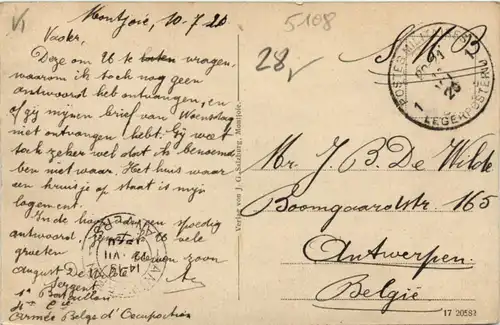 Montjoie, 10-7-20
5108
Vader,
28,-
S. M. B
Deze om U te laten vragen,
waarom ik toch nog geen
antwoord heb ontvangen, en
of gij mijnen brief van Woensdag
niet ontvangen hebt. Gij weet
toch zeker wel dat ik benoemd
ben niet waar. Het huis waar
een kruisje op staat is mijn
logement.
In de hoop van een spoedig
antwoord, U vele
groeten Uwen zoon
August De Wilde
Sergent
1e Bataillon
4me Cie
Armée Belge d'Occupation
POSTES MILITAIRES
LEGERPOSTERIJ
1
Verlag von J. G. Salzburg, Montjoie.
ANTWERPEN
VII
Mr J. B. De Wilde
Boomgaardstr. 165
Antwerpen
België
17 20582